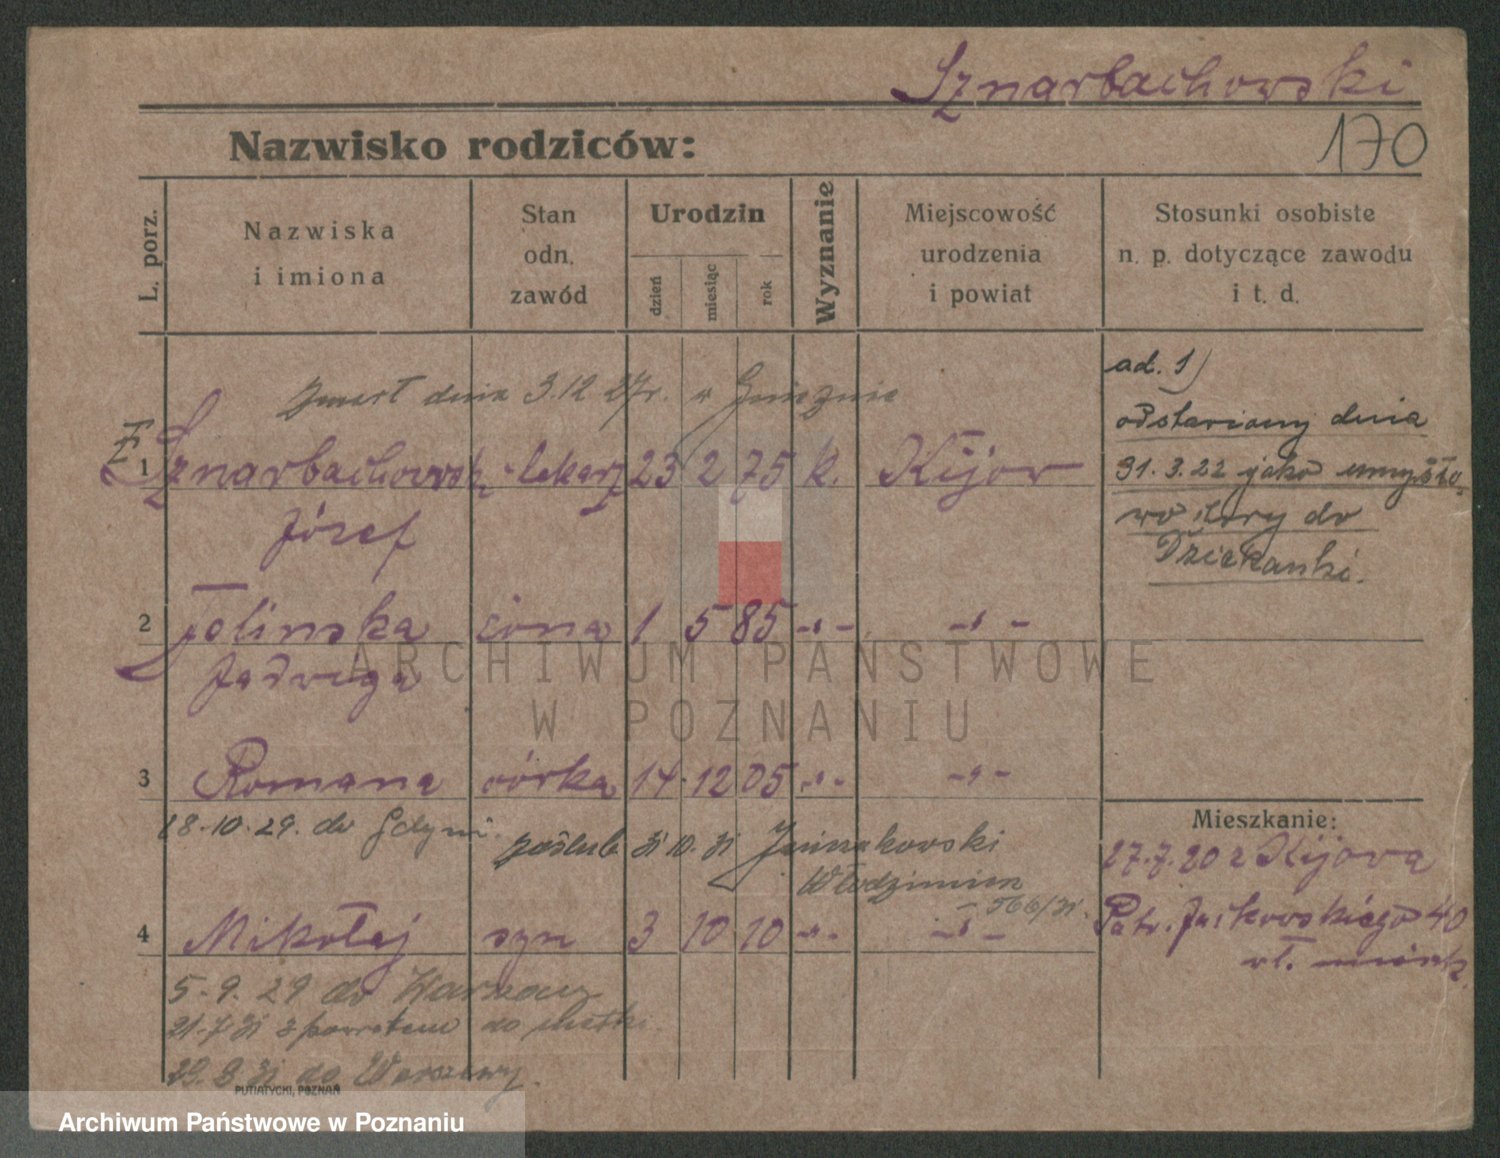 Sznarbachowski
170
Nazwisko rodziców:
L. porz.
Nazwiska
i imiona
Stan
odn.
zawód
Urodzin
dzień
miesiąc
rok
Wyznanie
Miejscowość
urodzenia
i powiat
Stosunki osobiste
n. p. dotyczące zawodu
i t. d.
zmarł dnia 3.12 27r. w Gnieznie
1 Sznarbachowski lekarz 23 2 75 k. Kijów
Józef
ad. 1)
odstawiony dnia
31.3.22 jako umysło-
wo chory do
Dziekanki.
2 żona 1 5 85 -"- -"-
Jadwiga
3 Romana córka 14 12 05 -"- -"-
18-10.29. do Gdyni.
zaślub. 31 10. 31
Włodzimierz
- 566/31.
4 Mikołaj syn 3 10 10 -"- -"-
5.9.29 do Warszawy
21.7.31 z powrotem do matki.
29.8.31 do Warszawy.
Mieszkanie:
27.7.20 z Kijowa
Patr. Jackowskiego 40
wł. mieszk.
PUTIATYCKI, POZNAŃ
ARCHIWUM PAŃSTWOWE
W POZNANIU
Archiwum Państwowe w Poznaniu